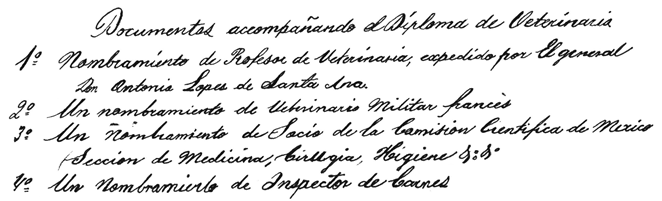 Documentos accompañando el Diploma de Veterinaria
1º Nombramiento de Profesor de Veterinaria, expedido por El general
Don Antonio Lopes de Santa Ana.
2º Un nombramiento de Vetrinario Militar francès
3º Un Ñombramiento de Socio de la Comision Cientifica de Mexico
(Seccion de Medicina, Cirugia, Higiene &:&º
4º Un Nombramiento de Inspector de Carnes